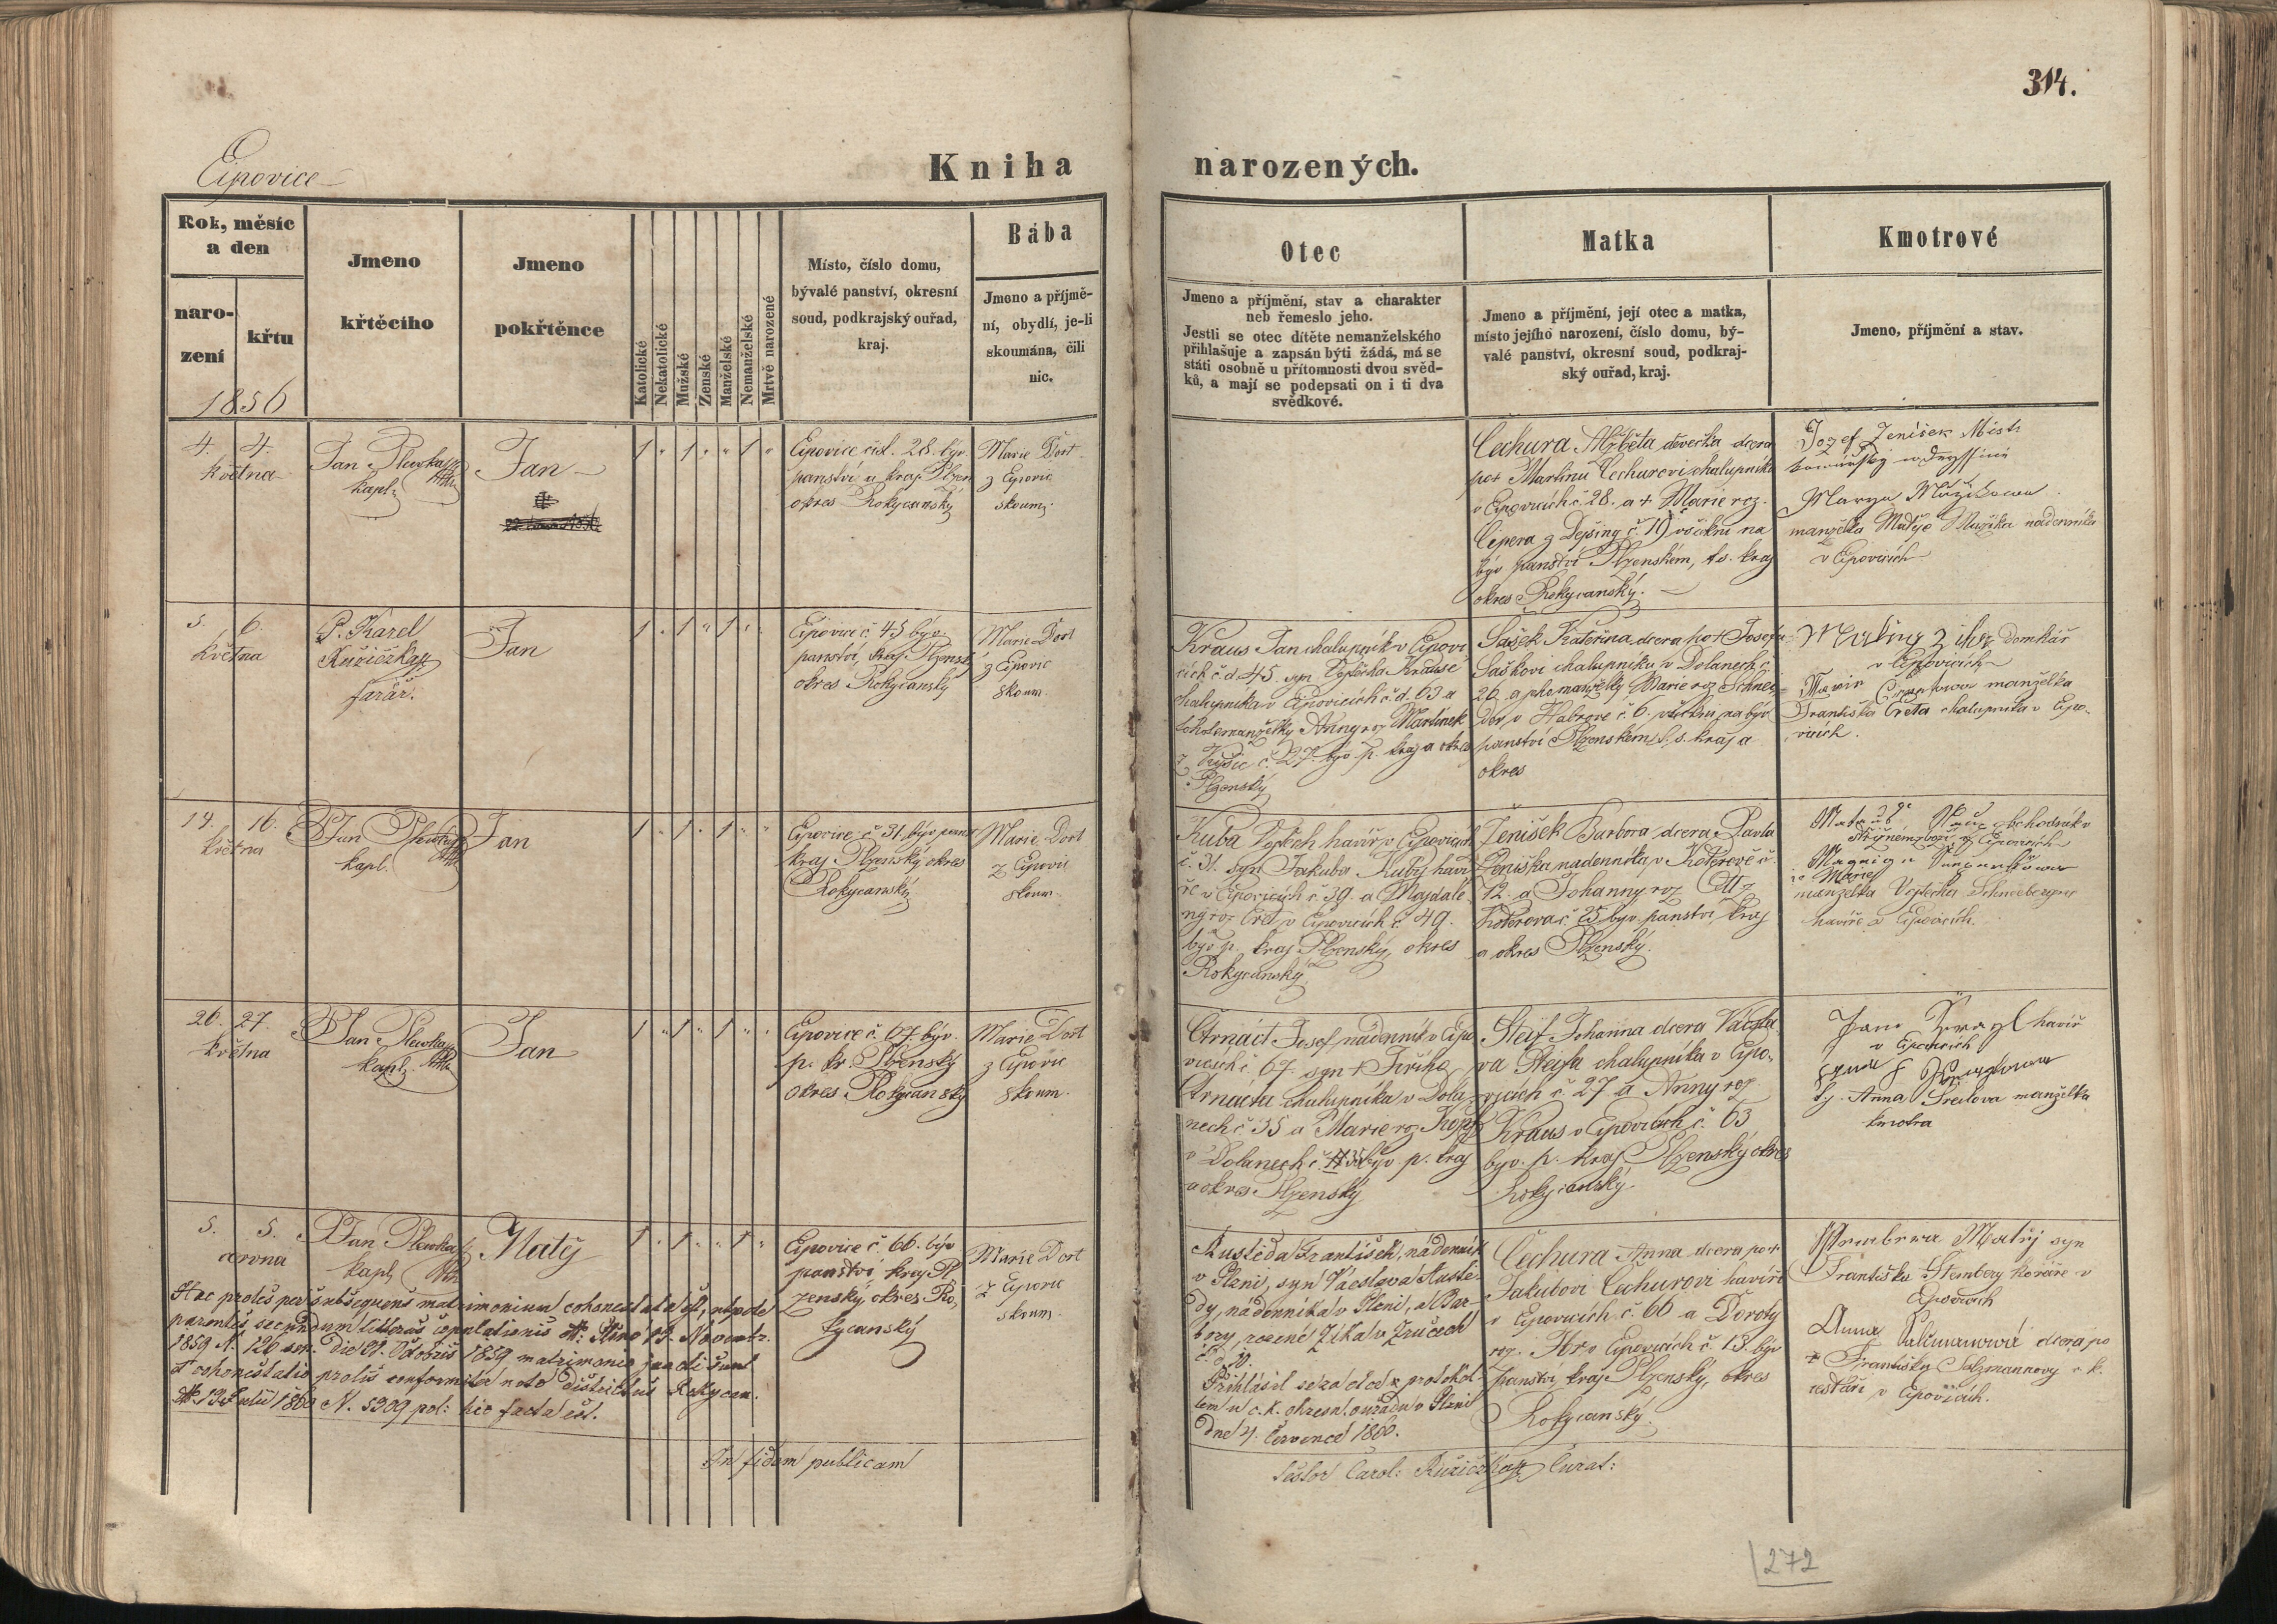 314.
Ejpovice
Kniha narozených.
Rok, měsíc
a den
naro-
zení
křtu
1856
Jmeno
křtěcího
Jmeno
pokřtěnce
Katolické
Nekatolické
Mužské
Ženské
Manželské
Nemanželské
Mrtvě narozené
Místo, číslo domu,
bývalé panství, okresní
soud, podkrajský ouřad,
kraj.
Bába
Jmeno a příjmě-
ní, obydlí, je-li
skoumána, čili
nic.
Otec
Jmeno a příjmění, stav a charakter
neb řemeslo jeho.
Jestli se otec dítěte nemanželského
přihlašuje a zapsán býti žádá, má se
státi osobně u přítomnosti dvou svěd-
ků, a mají se podepsati on i ti dva
svědkové.
Matka
Jmeno a příjmění, její otec a matka,
místo jejího narození, číslo domu, bý-
valé panství, okresní soud, podkraj-
ský ouřad, kraj.
Kmotrové
Jmeno, příjmění a stav.
4. 4.
května
Jan Plevka
kapl.
Jan
1 " 1 " " 1 "
Ejpovice čísl. 28. býv.
panství a kraj Plzen
okres Rokycanský
Marie Dort
z Ejpovic
skoum.
Čechura Alžběta děvečka dcera
po + Martinu Čechurovi chalupníku
v Ejpovicích č 28. a + Marie roz.
Cipera z Dejšiny č. 19 všickni na
býv panství Plzenském, t.s. kraj
okres Rokycanský.
Jozef Jenišek Mistr
kovářský w Deyssině
Marya Mužikowa
manželka Matěje Mužika nádenníka
v Ejpovicích
5. 6.
května
P. Karel
Růžička
farář.
Jan
1 " 1 " 1 " "
Ejpovice č. 45 býv.
panství, kraj Plzenský
okres Rokycanský
Marie Dort
z Ejpovic
skoum.
Kraus Jan chalupník v Ejpovi
cích č d. 45. syn Vojtěcha Krause
chalupníka v Ejpovicích č.d. 63 a
tohotemanželky Anny roz Martinek
z Kyšic č. 27. býv. p. kraj a okres
Plzenský
Sašek Kateřina dcera po + Josefu
Saškovi chalupníku v Dolanech č.
26 a jeho manželky Marie roz. Schnei
der v Habrově č. 6. všickni na býv
panství Plzenském, t.s. kraj a
okres
domkář
v Ejpovicích
manželka
Františka Creta chalupníka v Ejpo-
vicích.
14. 16.
května
P Jan Plevka
kapl.
Jan
1 " 1 " 1 " "
Ejpovice č 31. býv pans
kraj Plzenský okres
Rokycanský
Marie Dort
z Ejpovic
skoum.
Kuba Vojtěch havíř v Ejpovicích
č. 31. syn Jakuba Kuby haví
ře v Ejpovicích č. 39. a Magdale
ny roz Cret v Ejpovicích č. 49.
býv. p. kraj Plzenský, okres
Rokycanský
Ženíšek Barbora dcera Pavla
Ženíška nadenníka v Koterově č.
12. a Johanny roz Ott z
Koterova č 25 býv. panství, kraj
a okres Plzenský.
obchodník v
v Ejpovicích
Marie
manželka Vojtěcha Schneebergra
havíře v Ejpovicích.
26. 27.
května
P Jan Plevka
kapl.
Jan
1 " 1 " 1 " "
Ejpovice č. 67. býv.
p. kr. Plzenský
okres Rokycanský
Marie Dort
z Ejpovic
skoum.
Čtrnáct Josef nádenník v Ejpo
vicích č. 67. syn + Jiřího
Čtrnácta chalupníka v Dola
nech č 35 a Marie roz Kopp
v Dolanech č 35 býv p. kraj
a okres Plzenský
Steif Johanna dcera Václa
va Steifa chalupníka v Ejpo-
vicích č. 27 a Anny roz
Kraus v Ejpovicích č. 63
býv. p. kraj Plzenský okres
Rokycanský.
Jan havíř
v Ejpovicích
tj. Anna manželka
kmotra
5. 5.
června
P Jan Plevka
kapl.
Matěj
1 " 1 " " 1 "
Ejpovice č. 66. býv
panství kraj Pl
zenský, okres Ro-
kycanský
Marie Dort
z Ejpovic
skoum.
Haec proles per subsequens matrimonium cohonestata est, utpote
parentes secundum litteras copulationis dto: Plsnae 19. Novembr.
1859 N. 126 die 21. Octobris 1859 matrimonio juncti sunt
et cohonestatio prolis conformiter noto districtus Rokycan.
dto 13 Julii 1860 N. 5309 pol: hic facta est.
Kusteda František, nádenník
v Plzni, syn Václava Kuste-
dy, nádenníka v Plzni, a Bar-
bory, rozené Zíka v Zručech
č. d. 19.
Přihlásil se za otce protokol-
lem u c. k. okresn. ouřadu v Plzni
dne 4. července 1860.
Čechura Anna dcera po +
Jakubovi Čechurovi havíři
v Ejpovicích č. 66 a Doroty
roz. v Ejpovicích č. 13. býv
panství kraj Plzenský, okres
Rokycanský.
Matěj syn
Františka Štemberg kováře v
Ejpovicích
Anna Salcmanová dcera po
+ Františku Salzmannovy c. k.
cestáři v Ejpovicích.
In fidem publicam
testor Carol: Růžička Curat:
272